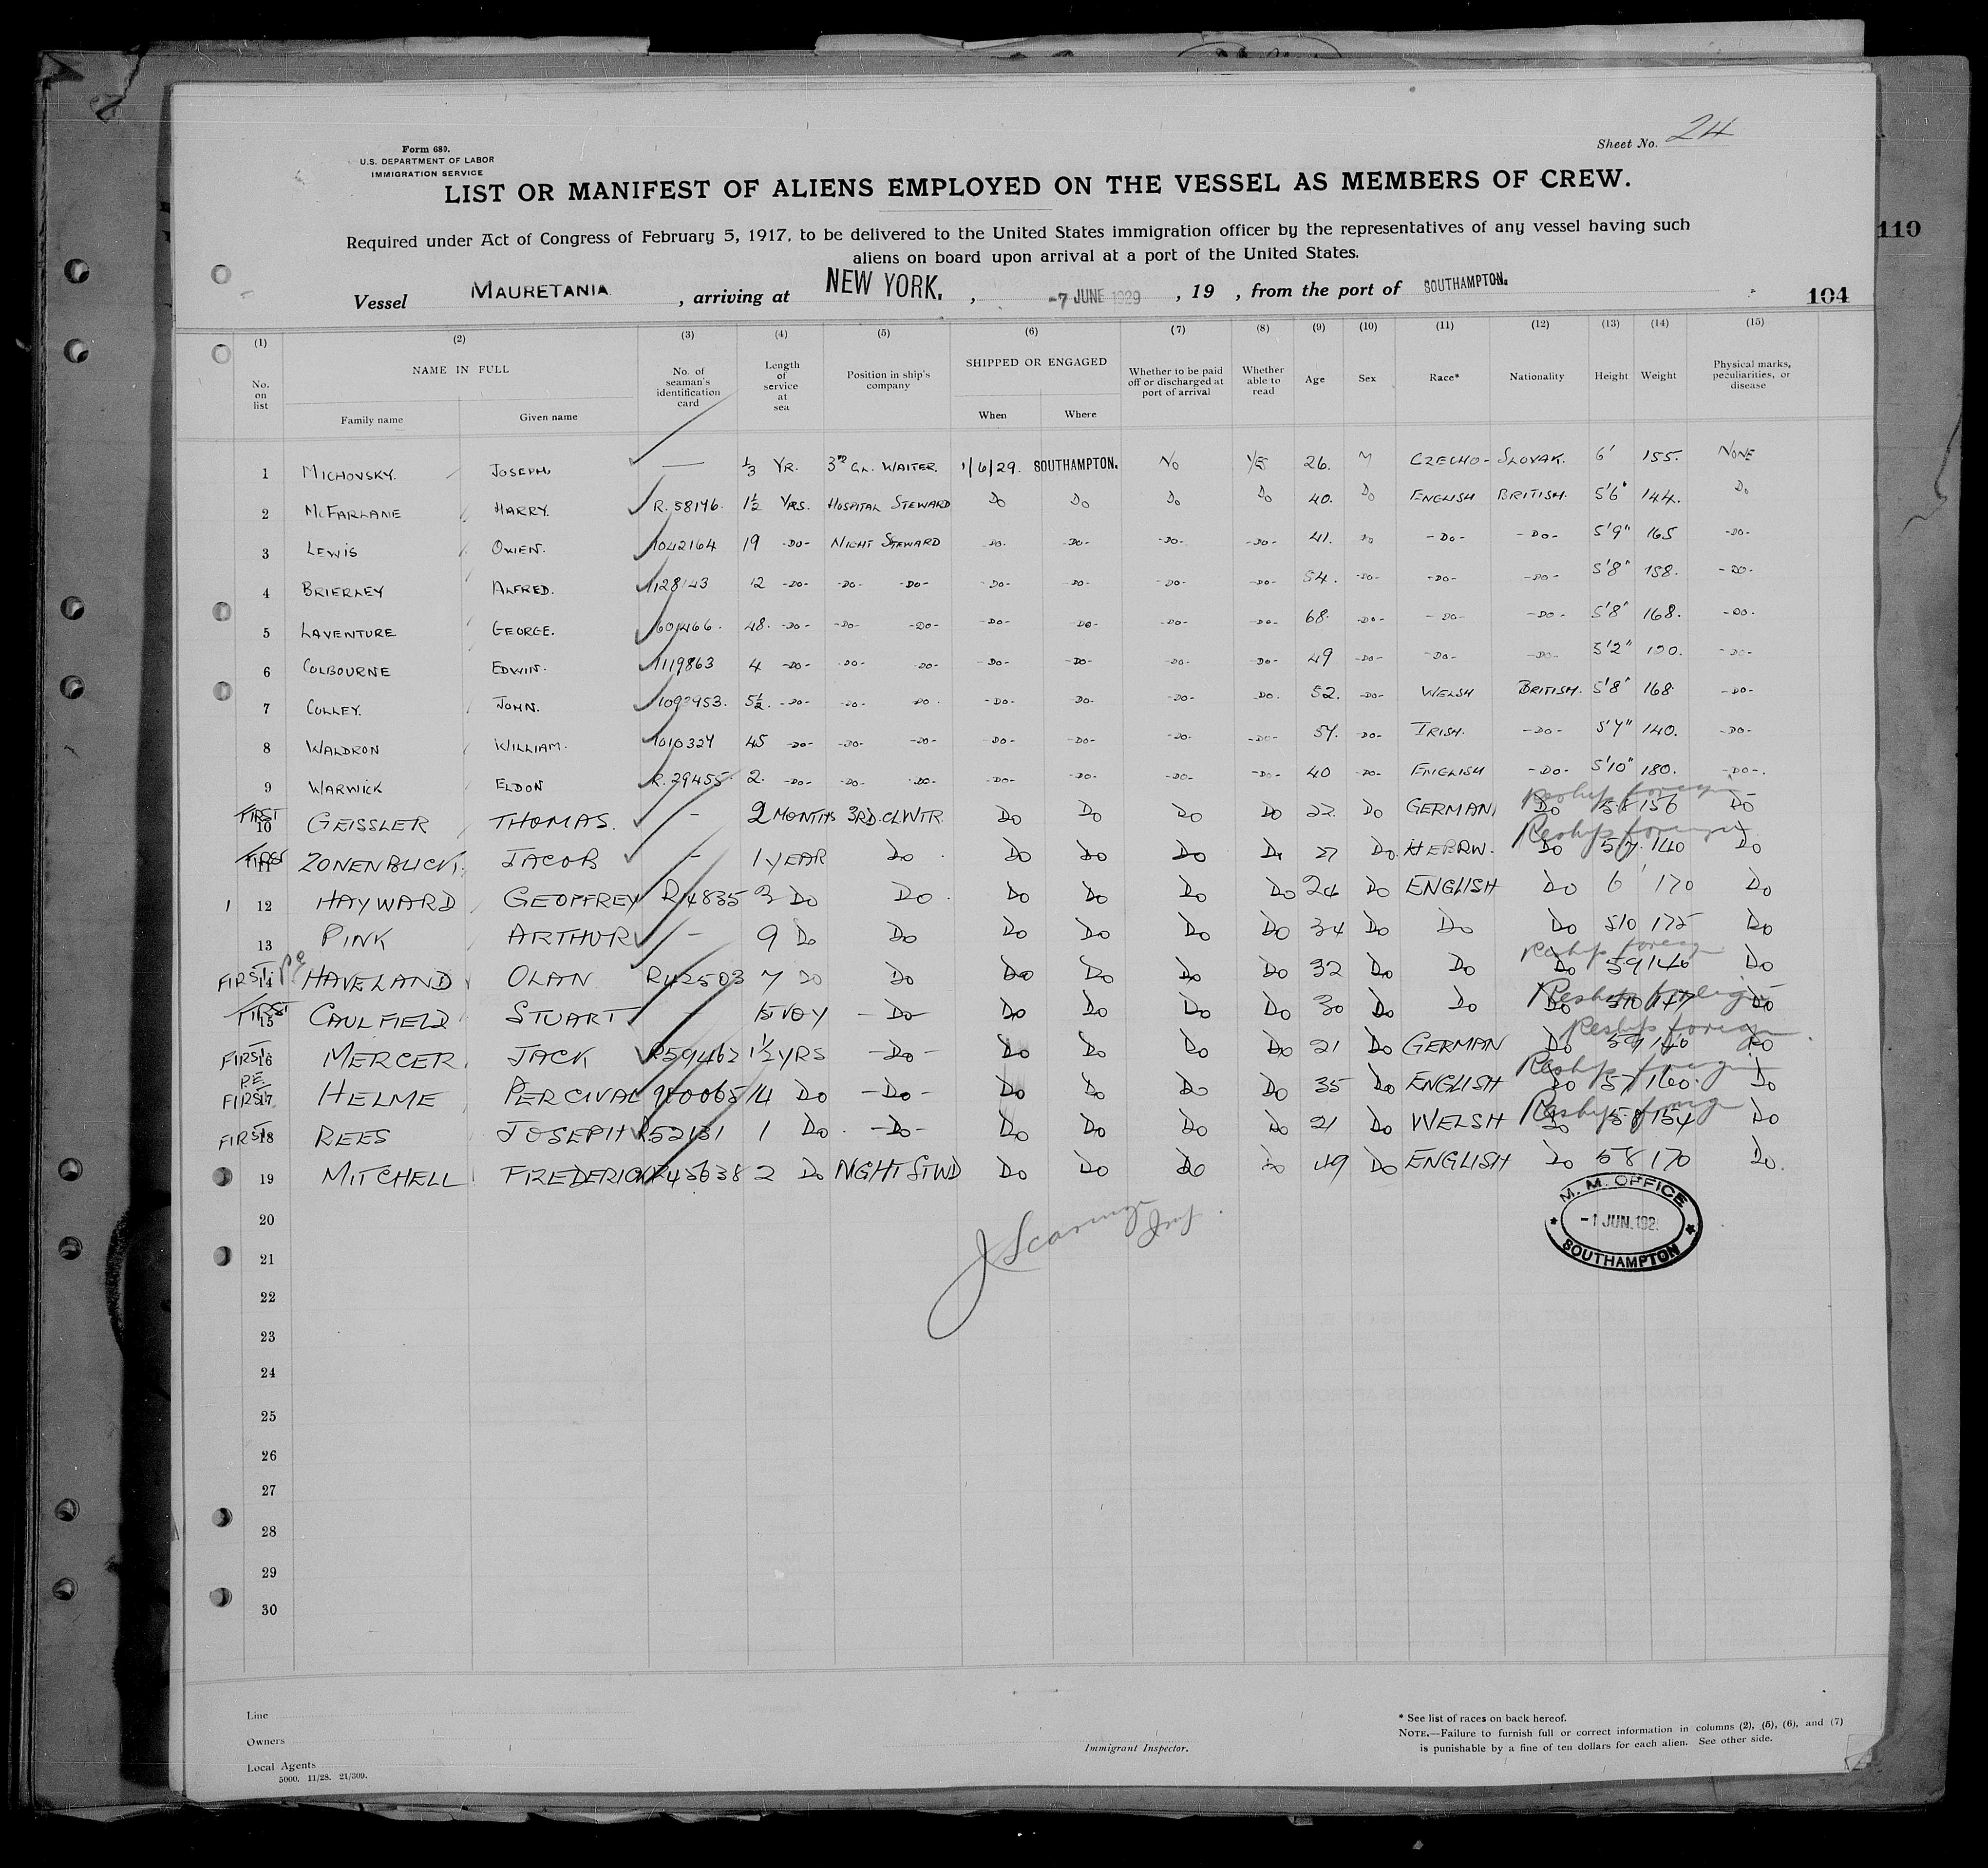 Sheet No. 24
Form 689.
U.S. DEPARTMENT OF LABOR
IMMIGRATION SERVICE
LIST OR MANIFEST OF ALIENS EMPLOYED ON THE VESSEL AS MEMBERS OF CREW.
110
Required under Act of Congress of February 5, 1917, to be delivered to the United States immigration officer by the representatives of any vessel having such
aliens on board upon arrival at a port of the United States.
Vessel MAURETANIA, arriving at NEW YORK., -7 JUNE 1929, 19 , from the port of SOUTHAMPTON.
104
(1) (2) (3) (4) (5) (6) (7) (8) (9) (10) (11) (12) (13) (14) (15)
No. on list NAME IN FULL Family name Given name No. of seaman's identification card Length of service at sea Position in ship's company SHIPPED OR ENGAGED When Where Whether to be paid off or discharged at port of arrival Whether able to read Age Sex Race* Nationality Height Weight Physical marks, peculiarities, or disease
1 MICHOVSKY. JOSEPH. — 1/3 YR. 3RD CL. WAITER 1/6/29. SOUTHAMPTON. NO YES 26. M CZECHO- SLOVAK. 6' 155. NONE
2 MCFARLANE HARRY. R.58146. 1½ YRS. HOSPITAL STEWARD DO DO DO DO 40. DO ENGLISH BRITISH. 5'6" 144. DO
3 LEWIS OWEN. 1042164 19 -DO- NIGHT STEWARD -DO- -DO- -DO- -DO- 41. DO -DO- -DO- 5'9" 165 -DO-
4 BRIERLEY ALFRED. 1128143 12 -DO- -DO- -DO- -DO- -DO- -DO- -DO- 54. -DO- -DO- -DO- 5'8" 158. -DO-
5 LAVENTURE GEORGE. 601466. 48. -DO- -DO- -DO- -DO- -DO- -DO- -DO- 68. -DO- -DO- -DO- 5'8" 168. -DO-
6 COLBOURNE EDWIN. 1119863 4 -DO- -DO- -DO- -DO- -DO- -DO- -DO- 49 -DO- -DO- -DO- 5'2" -DO-
7 COLLEY. JOHN. 5½. -DO- -DO- DO. -DO- DO. -DO- DO. 52. -DO- WELSH BRITISH. 5'8" 168. -DO-
8 WALDRON WILLIAM. 1010324 45 -DO- -DO- -DO- -DO- -DO- -DO- -DO- -DO- IRISH. -DO- 140. -DO-
9 WARWICK ELDON R.29455. 2. -DO- -DO- -DO- -DO- -DO- -DO- -DO- 40 -DO- ENGLISH -DO- 5'10" 180. -DO-.
Reship foreign
FIRST 10 GEISSLER THOMAS. - 2 MONTHS 3RD.CL WTR. DO DO DO DO 22. DO GERMAN DO 58 156 DO
Reship foreign
FIRST 11 JACOB - 1 YEAR DO DO DO DO DO 27 DO. HEBRW. DO 57. 140 DO
1 12 HAYWARD GEOFFREY R14835 3 DO DO. DO DO DO DO 24 DO ENGLISH DO 6' 170 DO
13 PINK ARTHUR - 9 DO DO DO DO DO DO 34 DO DO DO 510 175 DO
Reship foreign
FIRST. 14 P.E HAVELAND OLAN R42503 7 DO DO DO DO DO DO 32 DO DO DO 59 146 DO
Reship foreign
FIRST 15 CAULFIELD STUART - 15 VOY -DO- DO DO DO DO 30 DO DO DO 510 147 DO
Reship foreign
FIRST 16 MERCER. JACK R59462 1½ YRS -DO- DO DO DO DO 21 DO GERMAN DO 59 DO
Reship foreign
P.E. FIRST 17 HELME PERCIVAL 980065 14 DO -DO- DO DO DO DO 35 DO ENGLISH DO 57 160. DO
Reship foreign
FIRST 18 REES JOSEPH R52131 1 DO. -DO- DO DO DO DO 21 DO WELSH DO 58 154 DO
19 MITCHELL FREDERICK R45638 2 DO NIGHT STWD DO DO DO DO 49 DO ENGLISH DO 58 170 DO.
M. M. OFFICE
-1 JUN.192
SOUTHAMPTON
20
21
22
23
24
25
26
27
28
29
30
Line
Owners
Local Agents
5000. 11/28. 21/309.
Immigrant Inspector.
* See list of races on back hereof.
NOTE.—Failure to furnish full or correct information in columns (2), (5), (6), and (7)
is punishable by a fine of ten dollars for each alien. See other side.